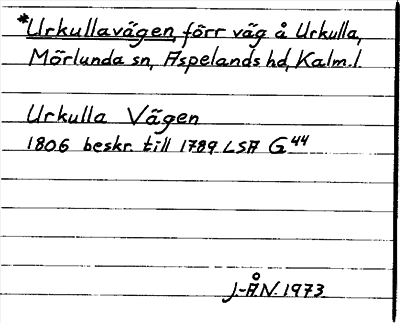 *Urkullavägen, förr väg å Urkulla,
Mörlunda sn, Aspelands hd, Kalm.l.
Urkulla Vägen
1806 beskr. till 1789 LSA G44
J.-Å.N. 1973